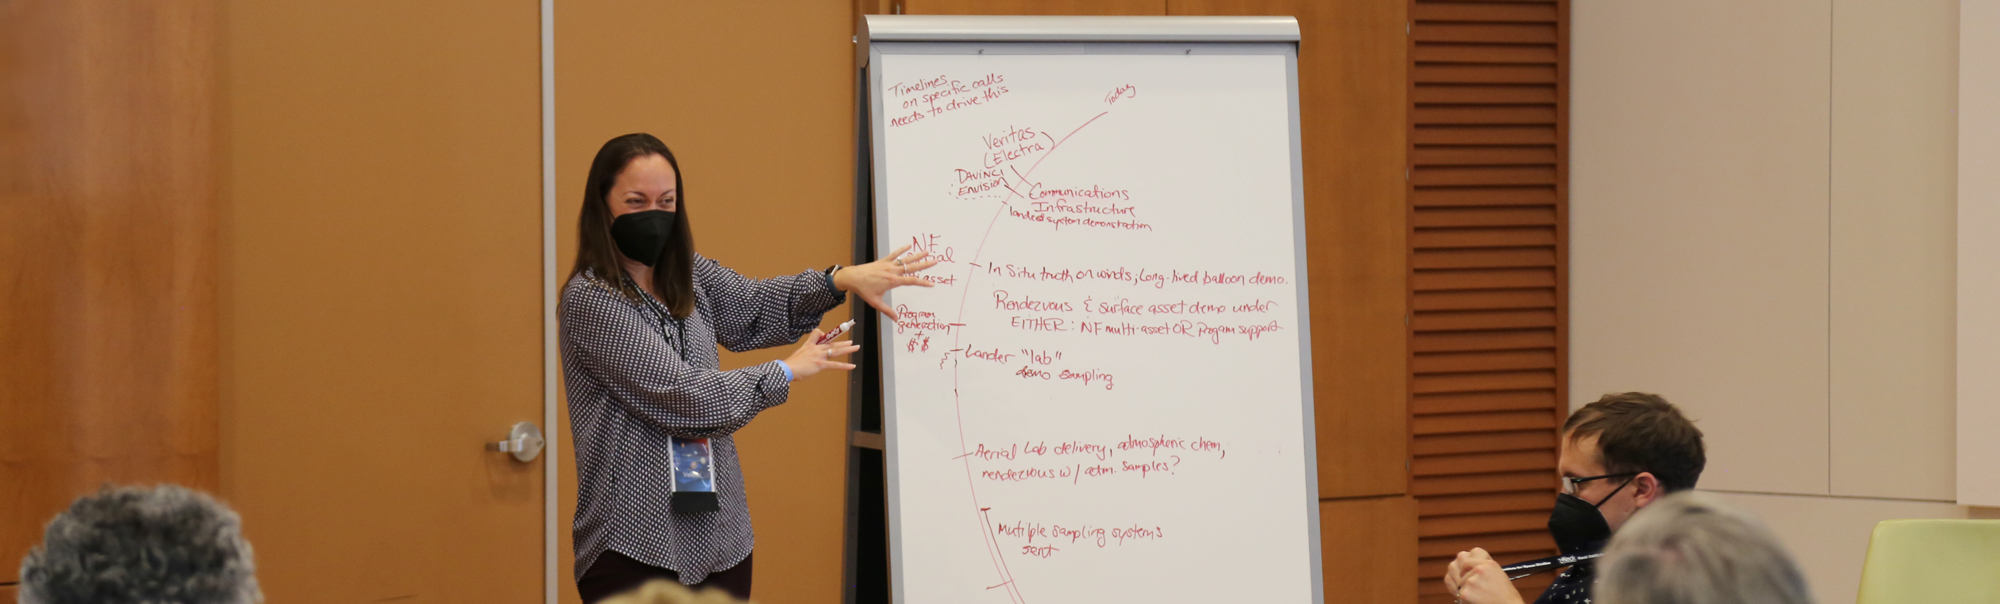 Timelines
on specific calls
needs to drive this
Today
Veritas
Electra
DAVINCI
ENVISION
Communications
Infrastructure
landed system demonstration
NF
asset
In Situ truth on winds; Long-lived balloon demo.
Rendezvous & surface asset demo under
EITHER: NF multi-asset OR Progam support
Program
generation
+
$$
Lander "lab"
demo sampling
Aerial Lab delivery, admospheric chem,
rendezvous w/ adm. samples?
Mutiple sampling systems
sent